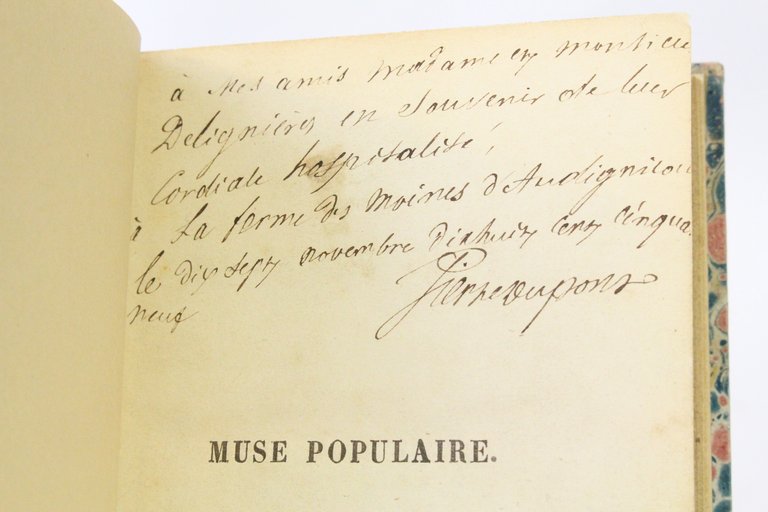 à Mes amis madame et monsieu
Delignières en Souvenir de leur
Cordiale hospitalité,
à La ferme des moines d'Audignicou
le dix sept novembre dixhuit cent cinqua
neuf
Pierre Dupont
MUSE POPULAIRE.